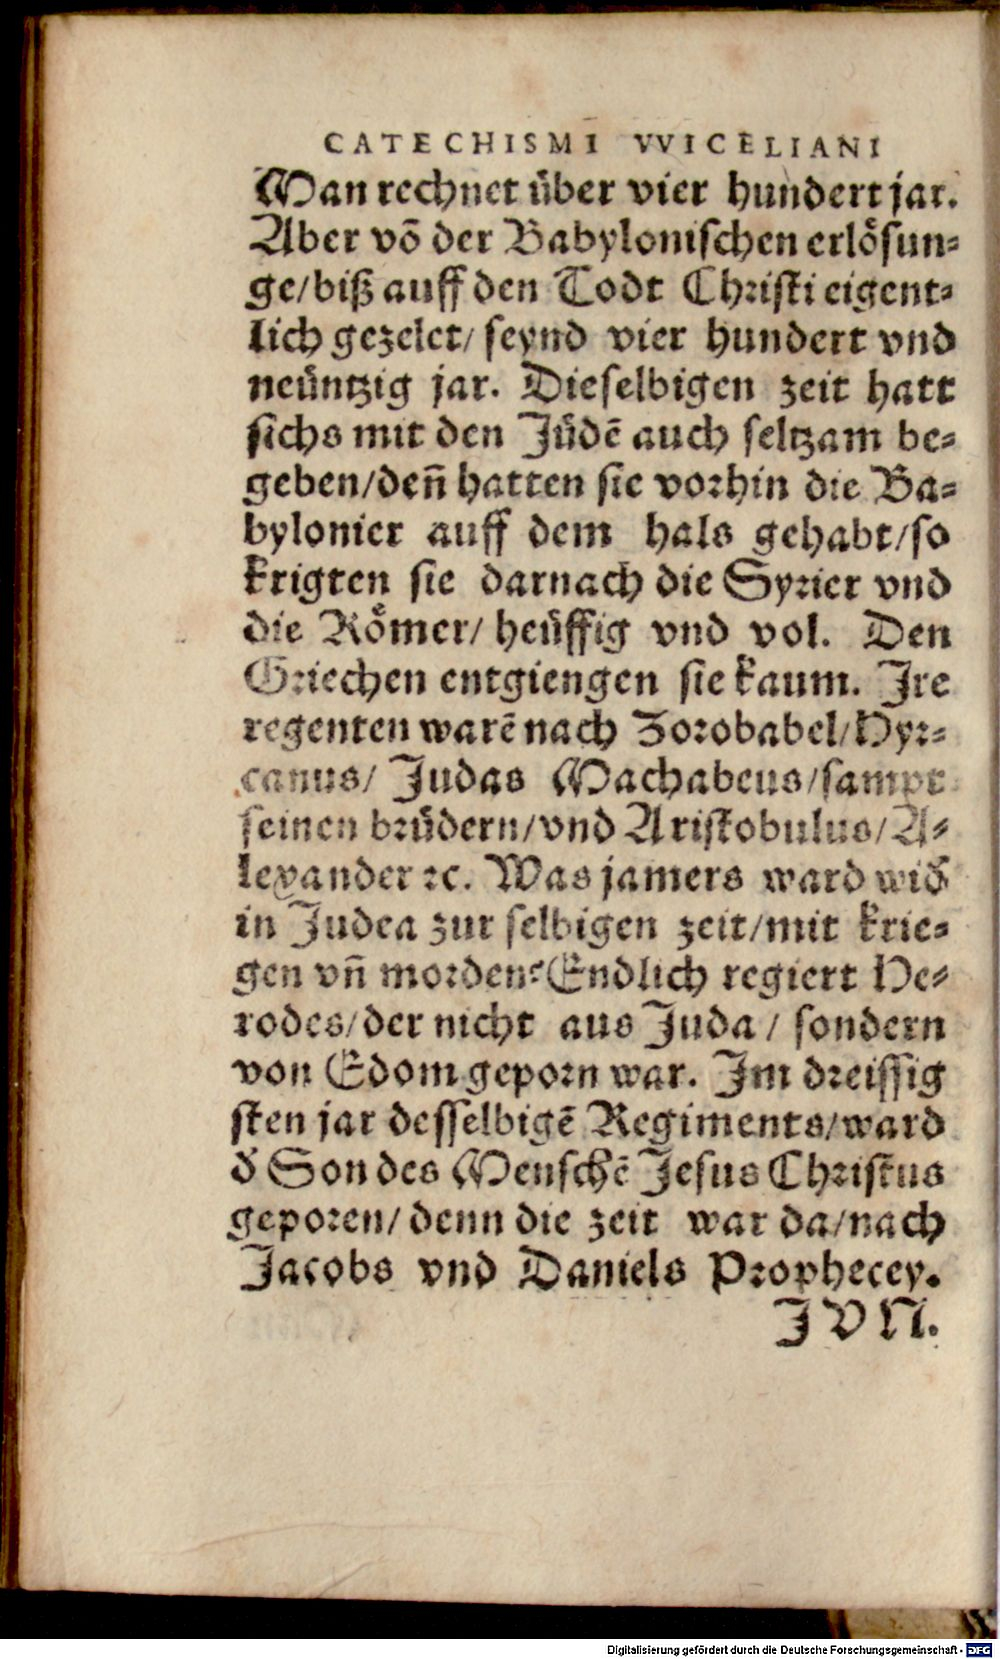 CATECHISMI VVICELIANI
Man rechnet über vier hundert jar.
Aber võ der Babylonischen erlösun-
ge/biß auff den Todt Christi eigent-
lich gezelet/ seynd vier hundert vnd
neüntzig jar. Dieselbigen zeit hatt
sichs mit den Jüdẽ auch seltzam be-
geben/deñ hatten sie vorhin die Ba-
bylonier auff dem hals gehabt/so
krigten sie darnach die Syrier vnd
die Römer/ heüffig vnd vol. Den
Griechen entgiengen sie kaum. Ire
regenten warẽ nach Zorobabel/Hyr-
canus/ Judas Machabeus/sampt
seinen brüdern/vnd Aristobulus/A-
lexander ꝛc. Was jamers ward wid̕
in Judea zur selbigen zeit/mit krie-
gen vñ morden? Endlich regiert He-
rodes/der nicht aus Juda/ sondern
von Edom geporn war. Im dreissig
sten jar desselbigẽ Regiments/ward
d̕ Son des Menschẽ Jesus Christus
geporen/ denn die zeit war da/nach
Jacobs vnd Daniels Prophecey.
JVN.
Digitalisierung gefördert durch die Deutsche Forschungsgemeinschaft - DFG